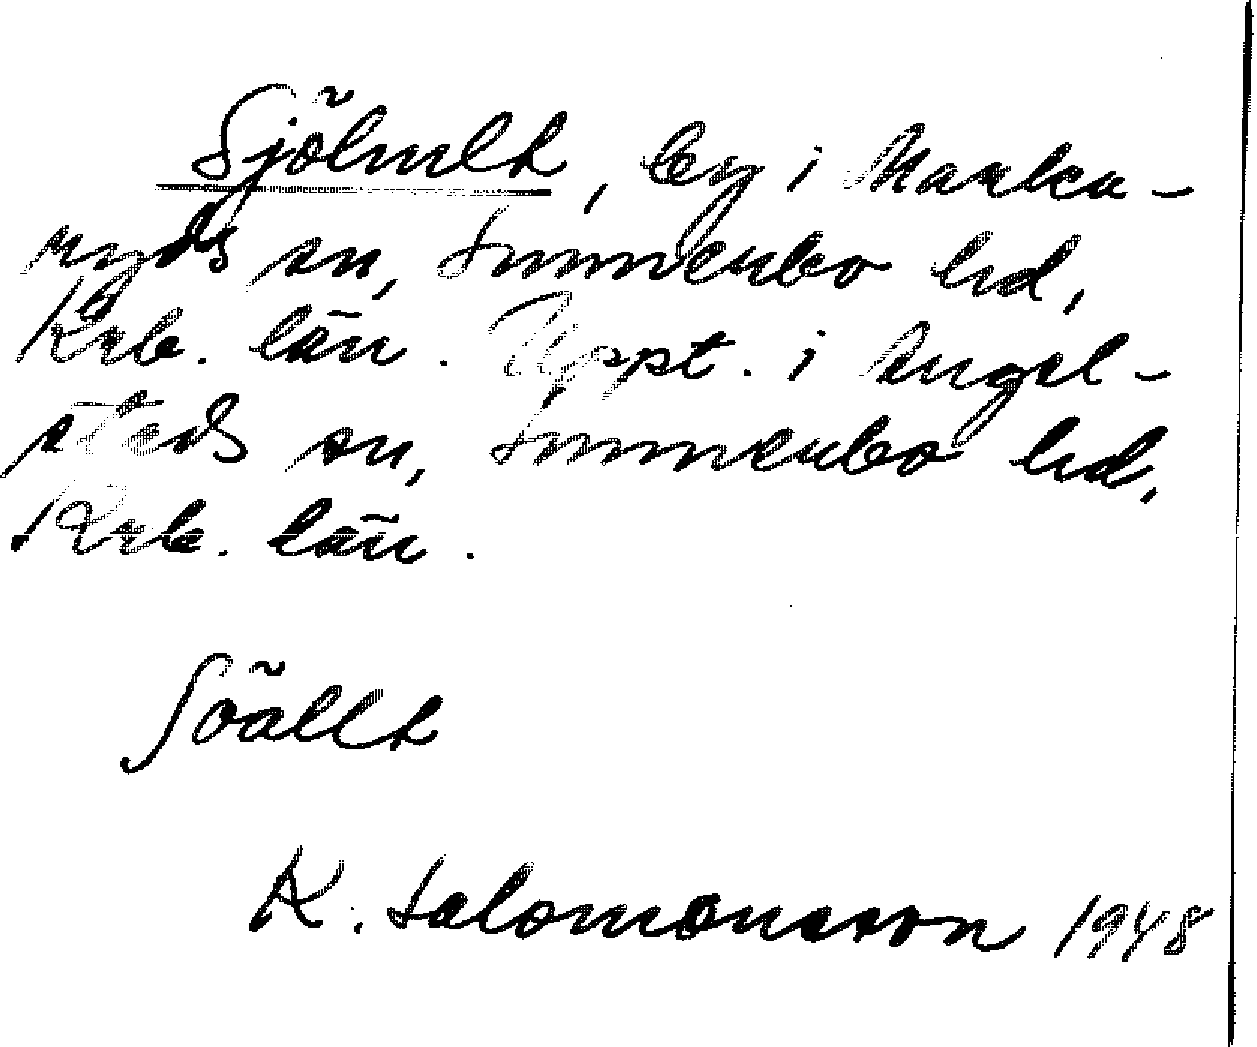 Sjöhult, by i Marka-
ryds sn, Sunnerbo hd,
Krb. län. Uppt. i Angel-
stads sn, Sunnerbo hd,
Krb. län.
K. Salomonsson 1948